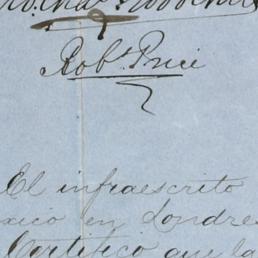 Robt. Price
El infraescrito
xico en Londre
Certifico que la